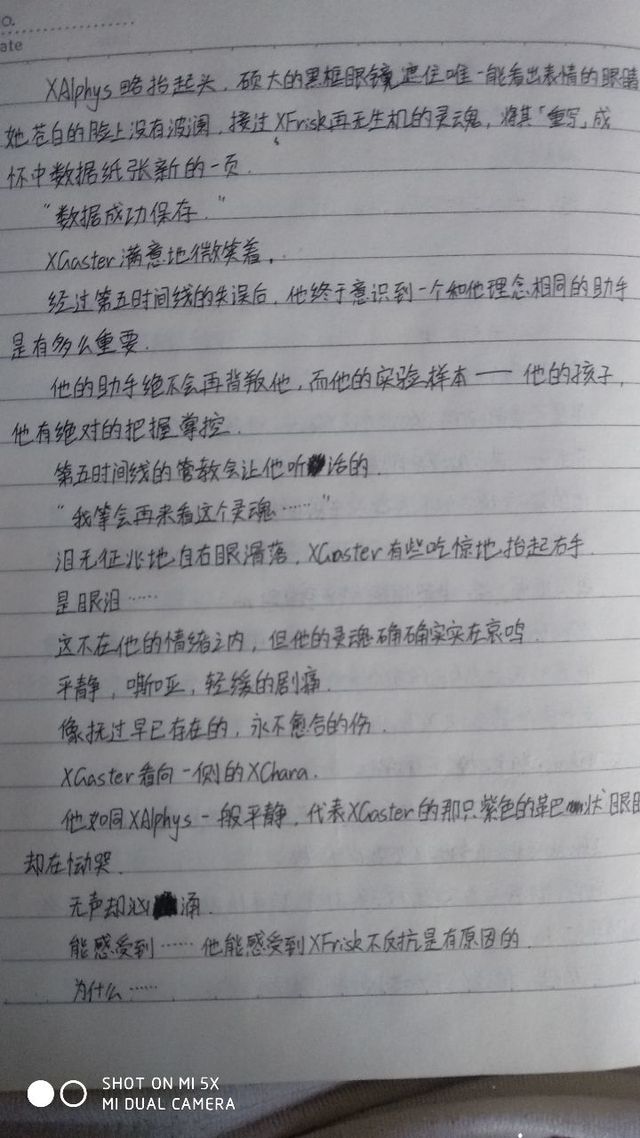 o.
ate
XAlphys略抬起头，硕大的黑框眼镜遮住唯一能看出表情的眼睛
她苍白的脸上没有波澜，接过XFrisk再无生机的灵魂，将其「重写」成
怀中数据纸张新的一页.
“数据成功保存.”
XGaster满意地微笑着。
经过第五时间线的失误后，他终于意识到一个和他理念相同的助手
是有多么重要.
他的助手绝不会再背叛他，而他的实验样本——他的孩子，
他有绝对的把握掌控.
第五时间线的管教会让他听话的.
“我等会再来看这个灵魂……”
泪无征兆地自右眼滑落，XGaster有些吃惊地抬起右手.
是眼泪……
这不在他的情绪之内，但他的灵魂确确实实在哀鸣.
平静，嘶哑，轻缓的剧痛.
像抚过早已存在的，永不愈合的伤.
XGaster看向一侧的XChara.
他如同XAlphys一般平静，代表XGaster的那只紫色的靶状眼眶
却在恸哭.
无声却汹涌.
能感受到……他能感受到XFrisk不反抗是有原因的.
为什么……
SHOT ON MI 5X
MI DUAL CAMERA